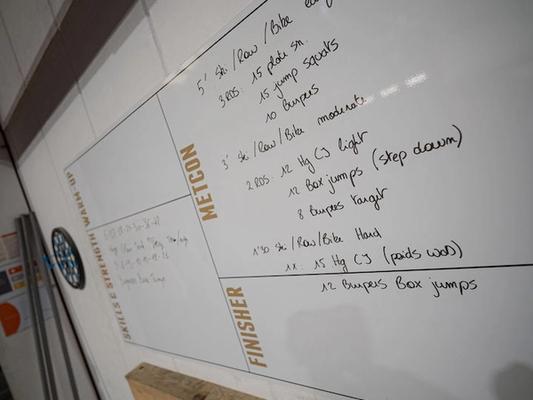 WARM-UP
SKILLS & STRENGTH
METCON
5' Ski/Row/Bike easy
3RDS: 15 plate sn.
15 jump squats
10 Burpees
3' Ski/Row/Bike moderate
2 RDS: 12 Hg CJ light
12 Box jumps (step down)
8 Burpees target
1'30 Ski/Row/Bike Hard
1x: 15 Hg CJ (poids WOD)
12 Burpees Box jumps
FINISHER